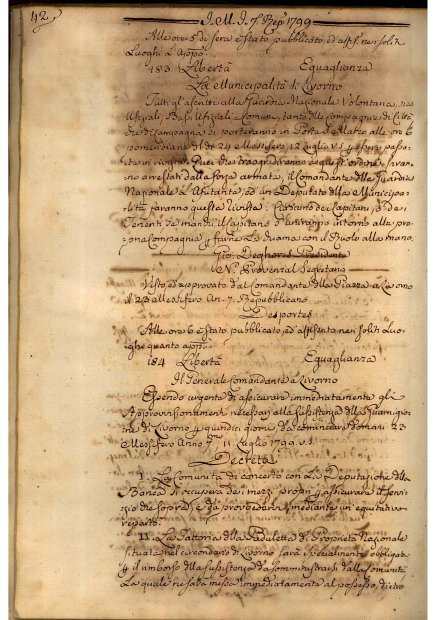 42
J. M. J. 7. Bre 1799
Alle ore 5 di sera è stato pubblicato, ed affisso nei soliti
Luoghi L'Appo:
183 Libertà Eguaglianza
La Municipalità di Livorno
Tutti gl'ascritti alla Guardia Nazionale Volontaria, sia
Ufiziali, Bassi Ufiziali e Comuni, tanto delle Compagnie di Città
che di Campagna si porteranno in Porta S. Marco alle ore 6
pomeridiane del dì 24 Messifero, 12 Luglio v.s. p. essere passa-
te in rivista. Quei che trasgrediranno a quest'ordine saran-
no arrestati dalla forza armata; il Comandante della Guardia
Nazionale L'Aiutante, ed un Deputato della Municipa-
lità faranno questa rivista. Ciascuno dei Capitani, o dei
Tenenti se manchi il Capitano s'uniranno intorno alla pro-
pria Compagnia p. farne La chiama con il Ruolo alla mano.
Gio: Deghores Presidente
N. Provenzal Segretario
Visto, ed approvato dal Comandante della Piazza a Livorno
il 23 Messifero An. 7. Repubblicano
Desportes
Alle ore 6 è stato pubblicato, ed affissato nei soliti Luo-
ghi quanto appo:
184 Libertà Eguaglianza
Il Generale Comandante a Livorno
Essendo urgente di assicurare immediatamente gli
Approvvisionamenti necessari alla sussistenza della Guarnigione
di Livorno p. quindici giorni, da cominciare domani 23
Messifero Anno 7mo 11 Luglio 1799. v.s.
Decreta
I. La Comunità di concerto con La Deputazione della
Banca si occuperà dei mezzi propri p. assicurare il servi-
zio che sopra, e da provvedersi mediante un equitativo
reparto.
II. La Fattoria della Paduletta di Proprietà Nazionale
situata nel circondario di Livorno sarà specialmente obbligata
p. il rimborso della sussistenza da somministrarsi dalla Comunità
La quale ne sarà messa immediatamente al possesso, dietro